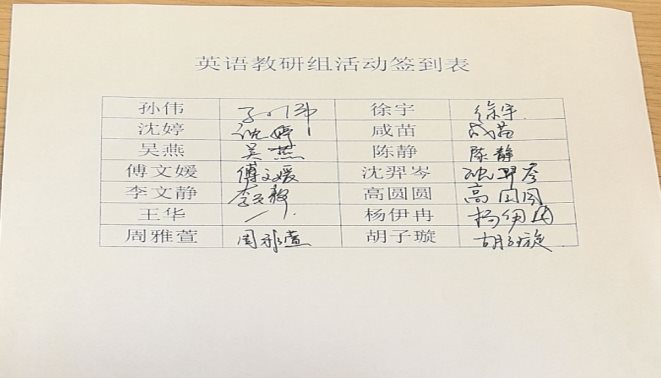 英语教研组活动签到表
孙伟 孙伟 徐宇 徐宇
沈婷 沈婷 咸苗 咸苗
吴燕 吴燕 陈静 陈静
傅文媛 傅文媛 沈羿岑 沈羿岑
李文静 李文静 高圆圆 高圆圆
王华 杨伊冉 杨伊冉
周雅萱 周雅萱 胡子璇 胡子璇